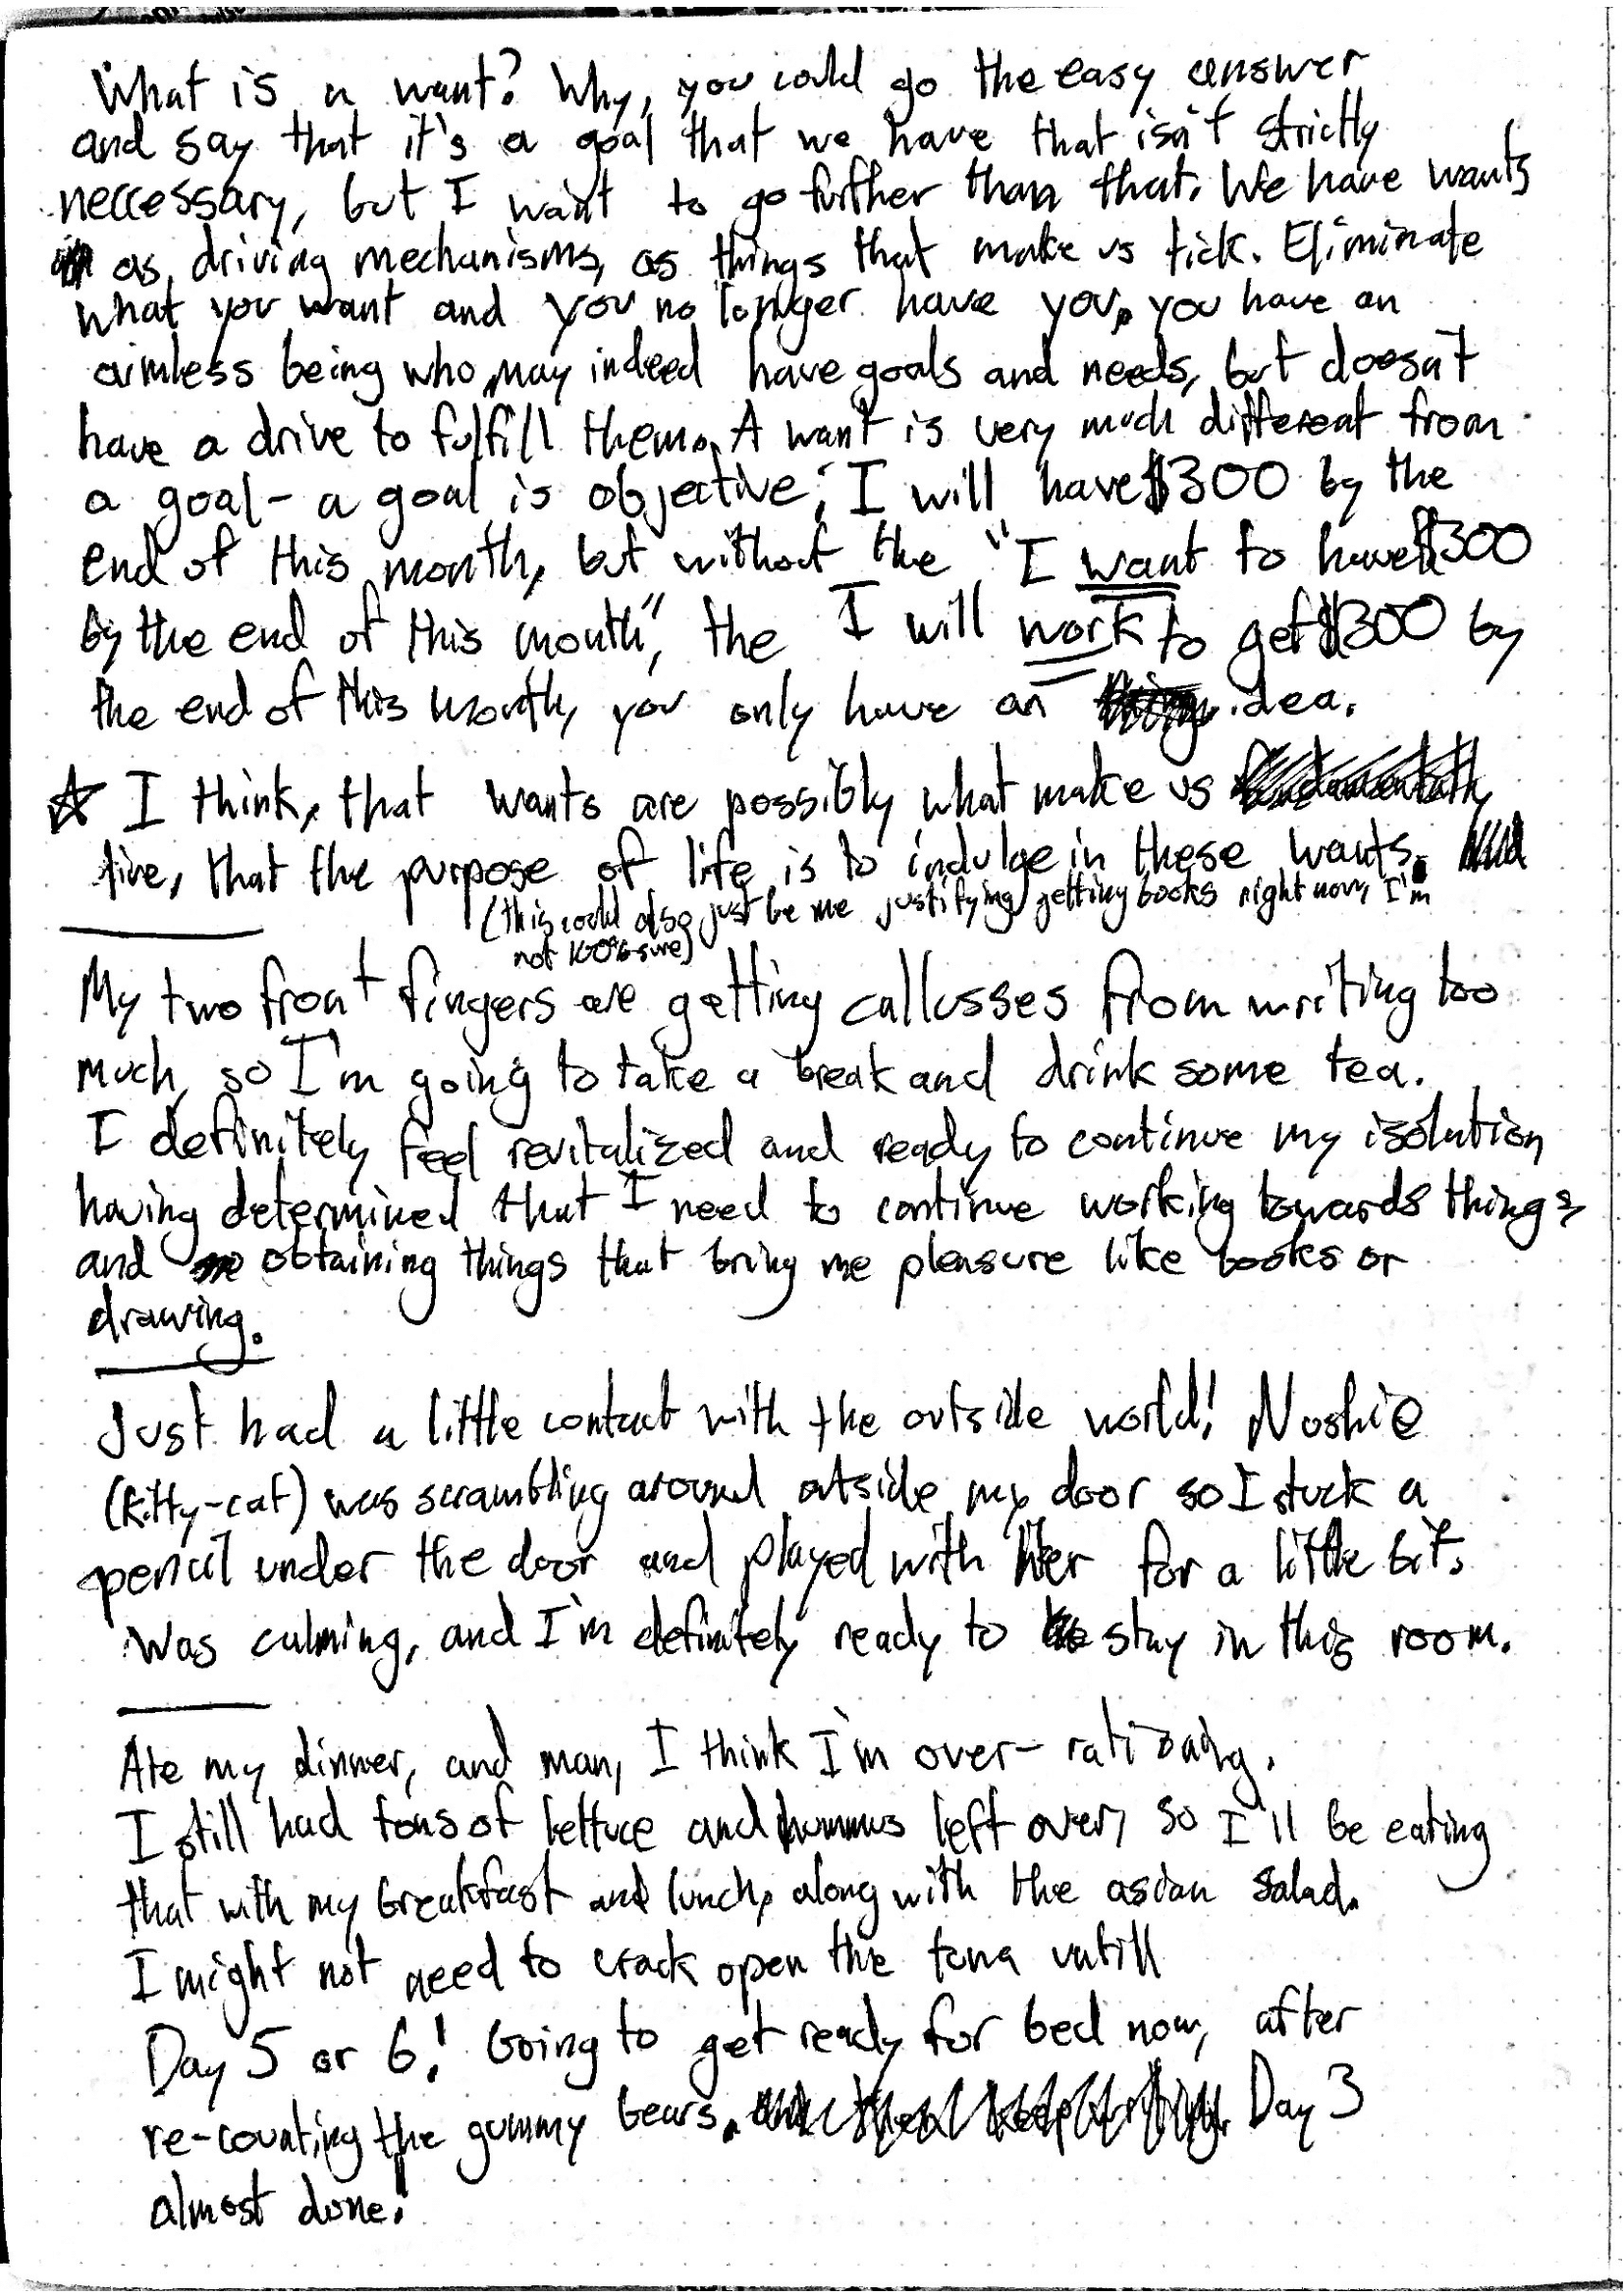 What is a want? Why, you could go the easy answer
and say that it's a goal that we have that isn't strictly
neccessary, but I want to go further than that. We have wants
as driving mechanisms, as things that make us tick. Eliminate
what you want and you no longer have you, you have an
aimless being who may indeed have goals and needs, but doesn't
have a drive to fulfill them. A want is very much different from
a goal - a goal is objective; I will have $300 by the
end of this month, but without the "I want to have $300
by the end of this month", the I will work to get $300 by
the end of this month, you only have an idea.
☆ I think, that wants are possibly what make us
live, that the purpose of life is to indulge in these wants.
(this could also just be me justifying getting books right now, I'm
not 100% sure)
My two front fingers are getting callusses from writing too
much, so I'm going to take a break and drink some tea.
I definitely feel revitalized and ready to continue my isolation
having determined that I need to continue working towards things,
and obtaining things that bring me pleasure like books or
drawing.
Just had a little contact with the outside world! Noshie
(kitty-cat) was scrambling around outside my door so I stuck a
pencil under the door and played with her for a little bit.
Was calming, and I'm definitely ready to stay in this room.
Ate my dinner, and man, I think I'm over-rationing.
I still had tons of lettuce and hummus left over, so I'll be eating
that with my breakfast and lunch, along with the asian salad.
I might not need to crack open the tuna untill
Day 5 or 6! Going to get ready for bed now, after
re-counting the gummy bears. Day 3
almost done!